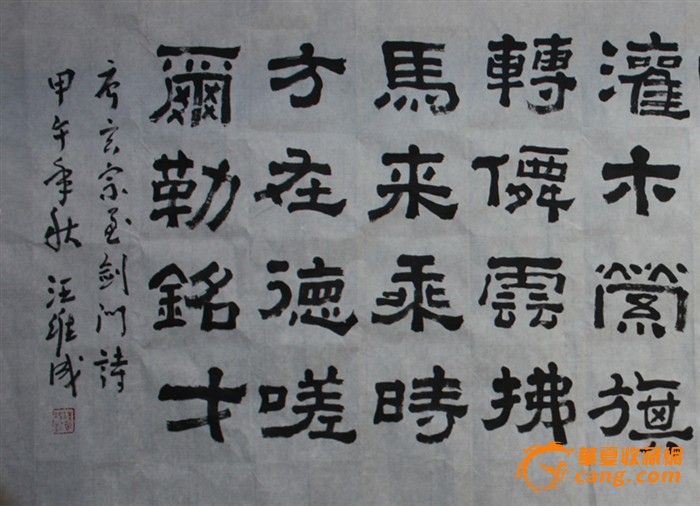 灌木縈旗
轉僊雲拂
馬来乘時
方在德嗟
爾勒銘才
唐玄宗至劍門詩
甲午年秋 汪維成
華夏收藏網
cang.com